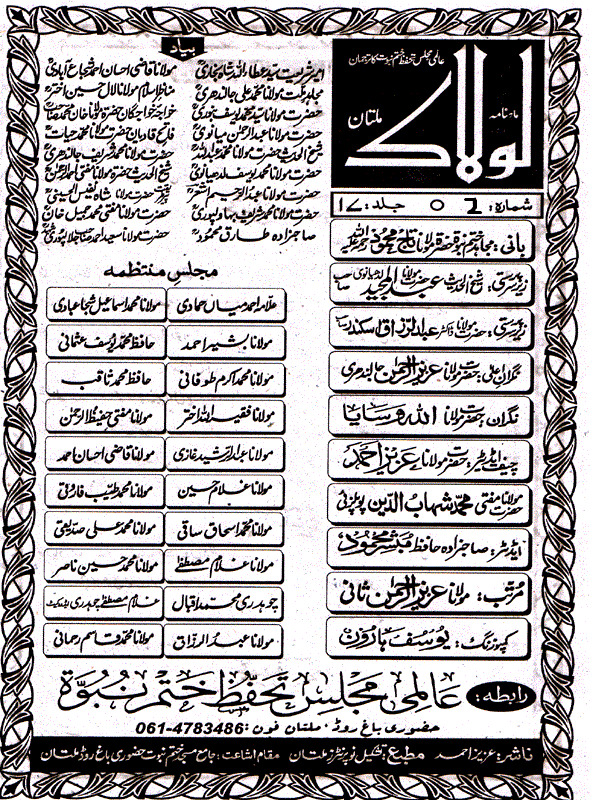 عالمی مجلس تحفظ ختم نبوت کا ترجمان
ماہنامہ
لولاک
ملتان
شمارہ: 6 5 جلد: 17
بانی: مجاہد ختم نبوۃ حضرت مولانا تاج محمود رحمۃ اللہ علیہ
زیر سرپرستی: شیخ الحدیث حضرت مولانا عبدالمجید لدھیانوی صاحب
زیر سرپرستی: حضرت مولانا ڈاکٹر عبدالرزاق اسکندر صاحب
نگران اعلیٰ: حضرت مولانا عزیز الرحمن جالندھری
نگران: حضرت مولانا اللہ وسایا
چیف ایڈیٹر: حضرت مولانا عزیز احمد
حضرت مولانا مفتی محمد شہاب الدین پوپلزئی
ایڈیٹر: صاحبزادہ حافظ مبشر محمود
مرتب: مولانا عزیز الرحمن ثانی
کمپوزنگ: یوسف ہارون
بیاد
امیر شریعت سید عطاء اللہ شاہ بخاری
مولانا قاضی احسان احمد شجاع آبادی
مجاہد ملت مولانا محمد علی جالندھری
مناظر اسلام مولانا لال حسین اختر
حضرت مولانا سید محمد یوسف بنوری
خواجہ خواجگان حضرت مولانا خان محمد صاحب
حضرت مولانا عبدالرحمن میانوی
فاتح قادیان حضرت مولانا محمد حیات
شیخ الحدیث حضرت مولانا محمد عبداللہ
حضرت مولانا محمد شریف جالندھری
حضرت مولانا محمد یوسف لدھیانوی
شیخ الحدیث حضرت مولانا مفتی احمد الرحمن
حضرت مولانا عبدالرحیم اشعر
حضرت مولانا شاہ نفیس الحسینی
حضرت مولانا محمد شریف بہاولپوری
حضرت مولانا مفتی محمد جمیل خان
صاحبزادہ طارق محمود
حضرت مولانا سعید احمد صاحب جلالپوری
مجلس منتظمہ
علامہ احمد میاں حمادی
مولانا محمد اسماعیل شجاعبادی
مولانا بشیر احمد
حافظ محمد یوسف عثمانی
مولانا محمد اکرم طوفانی
حافظ محمد ثاقب
مولانا فقیر اللہ اختر
مولانا مفتی حفیظ الرحمن
مولانا عبدالرشید غازی
مولانا قاضی احسان احمد
مولانا غلام حسین
مولانا محمد طیب فاروقی
مولانا محمد اسحاق ساقی
مولانا محمد علی صدیقی
مولانا غلام مصطفےٰ
مولانا محمد حسین ناصر
چوہدری محمد اقبال
غلام مصطفےٰ چوہدری ایڈووکیٹ
مولانا عبدالرزاق
مولانا محمد قاسم رحمانی
رابطہ: عالمی مجلس تحفظ ختم نبوۃ
حضوری باغ روڈ، ملتان فون: 061-4783486
ناشر: عزیز احمد مطبع: تشکیل نو پرنٹرز ملتان مقام اشاعت: جامع مسجد ختم نبوت حضوری باغ روڈ ملتان